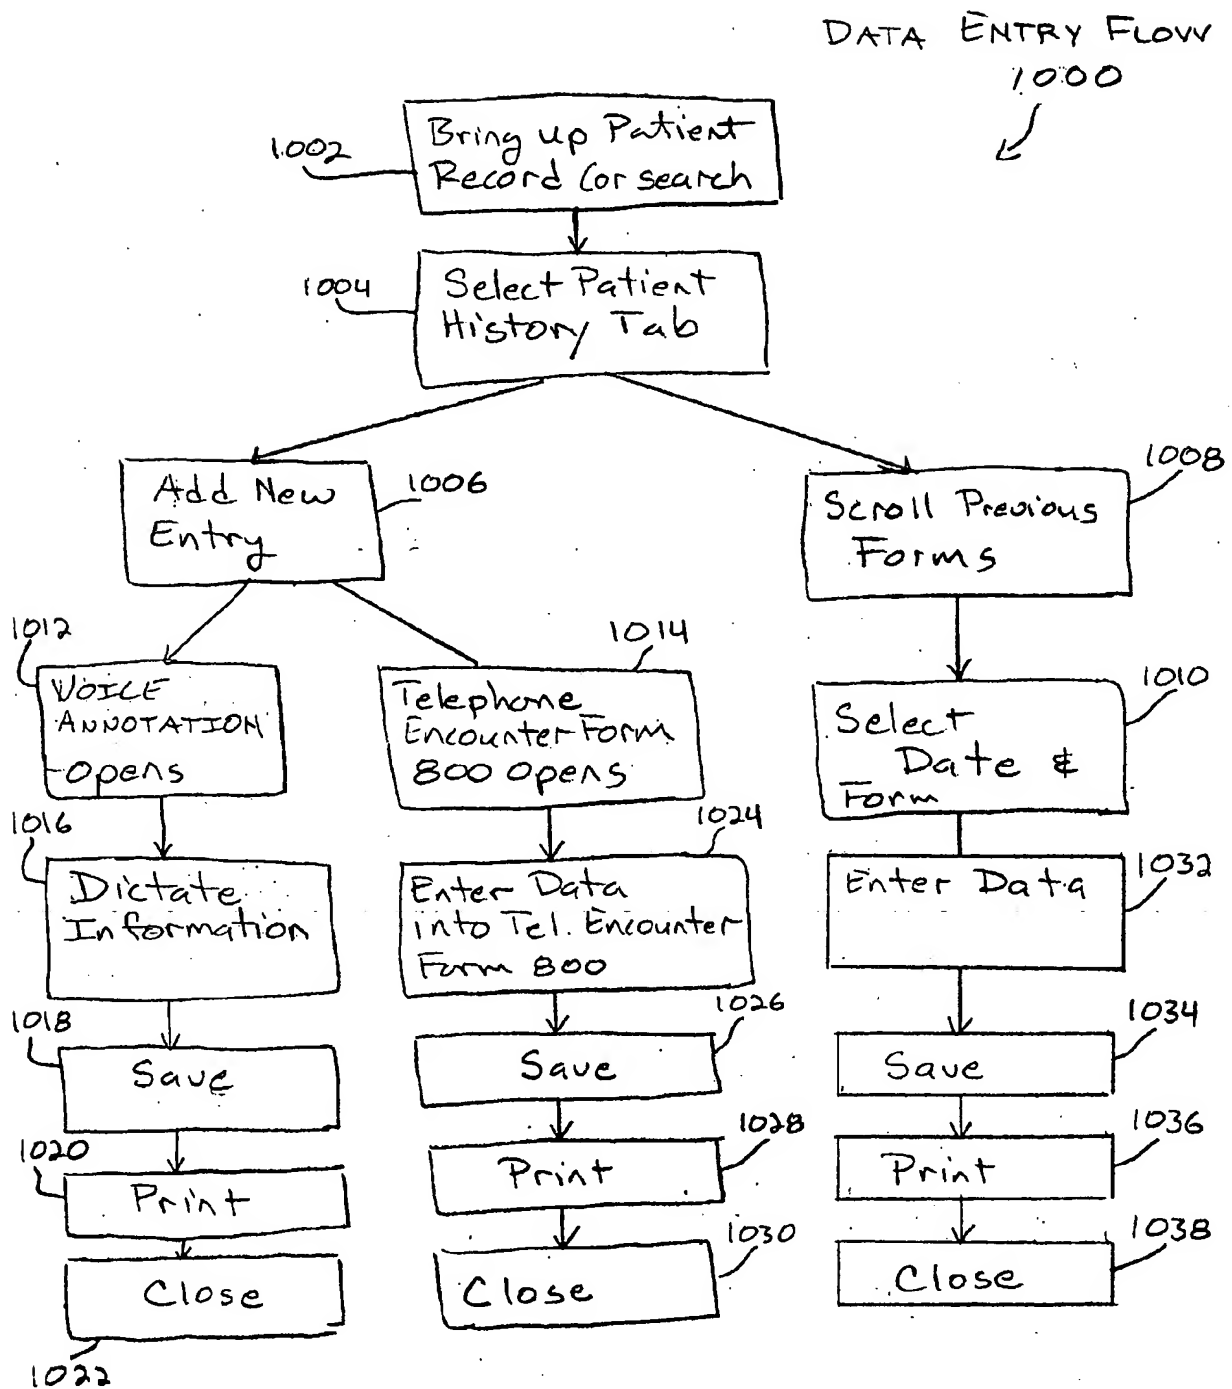 DATA ENTRY FLOW
1000
1002
Bring up Patient
Record (or search
1004
Select Patient
History Tab
Add New
Entry
1006
1008
Scroll Previous
Forms
1012
VOICE
ANNOTATION
Opens
1014
Telephone
Encounter Form
800 Opens
1010
Select
Date &
Form
1016
Dictate
Information
1024
Enter Data
into Tel. Encounter
Form 800
Enter Data
1032
1018
Save
1026
Save
1034
Save
1020
Print
1028
Print
1036
Print
Close
1022
1030
Close
1038
Close